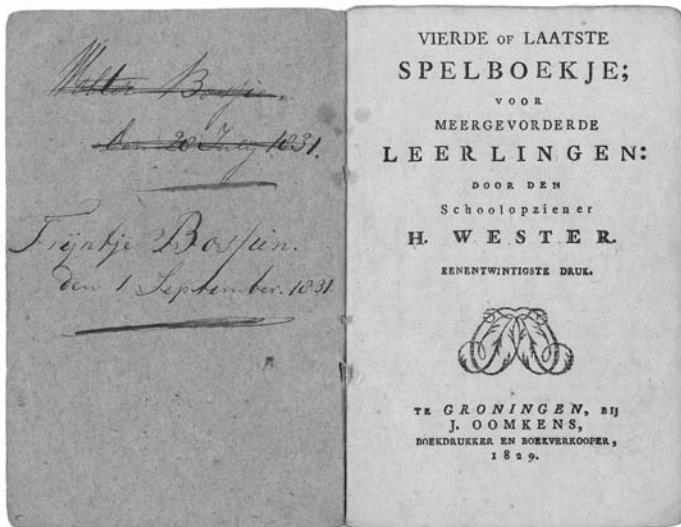 Wolter Bossien.
den 20 July 1831.
Trijntje Bossien.
den 1 September. 1831.
VIERDE OF LAATSTE
SPELBOEKJE;
VOOR
MEERGEVORDERDE
LEERLINGEN:
DOOR DEN
Schoolopziener
H. WESTER.
EENENTWINTIGSTE DRUK.
TE GRONINGEN, BIJ
J. OOMKENS,
BOEKDRUKKER EN BOEKVERKOOPER,
1829.